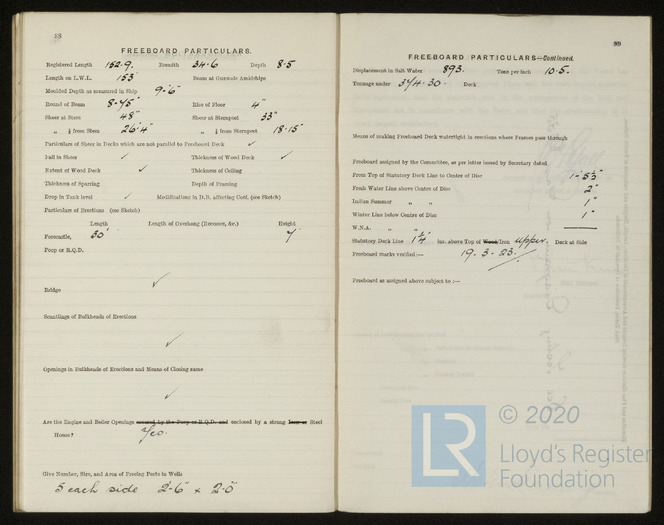 88
FREEBOARD PARTICULARS.
Registered Length 152.9. Breadth 24.6 Depth 8.5
Length on L.W.L. 153' Beam at Gunwale Amidships
Moulded Depth as measured in Ship 9'-6"
Round of Beam Rise of Floor 4"
Sheer at Stem 48" Sheer at Sternpost 33"
" ⅛ from Stem " ⅛ from Sternpost
Particulars of Sheer in Decks which are not parallel to Freeboard Deck ✓
Fall in Sheer ✓ Thickness of Wood Deck ✓
Extent of Wood Deck ✓ Thickness of Ceiling
Thickness of Sparring Depth of Framing
Drop in Tank level ✓ Modifications in D.B. affecting Coef. (see Sketch)
Particulars of Erections (see Sketch)
Length Length of Overhang (Recesses, &c.) Height
Forecastle, 30' 7'
Poop or R.Q.D.
✓
Bridge
Scantlings of Bulkheads of Erections
✓
Openings in Bulkheads of Erections and Means of Closing same
✓
Are the Engine and Boiler Openings covered by the Poop or R.Q.D. and enclosed by a strong Iron or Steel
House? Yes.
Give Number, Size, and Area of Freeing Ports in Wells
5 each side 2'-6" x 2'-0"
89
FREEBOARD PARTICULARS—Continued.
Displacement in Salt Water 893. Tons per inch 10.5.
Tonnage under 374.30. Deck
Means of making Freeboard Deck watertight in erections where Frames pass through
Freeboard assigned by the Committee, as per letter issued by Secretary dated
From Top of Statutory Deck Line to Centre of Disc 1'-5½"
Fresh Water Line above Centre of Disc 2"
Indian Summer " " 1"
Winter Line below Centre of Disc 1"
W.N.A. " "
Statutory Deck Line ins. above Top of Wood/Iron upper. Deck at Side
Freeboard marks verified:— 19.3.23.
Freeboard as assigned above subject to:—
LR
© 2020
Lloyd's Register
Foundation